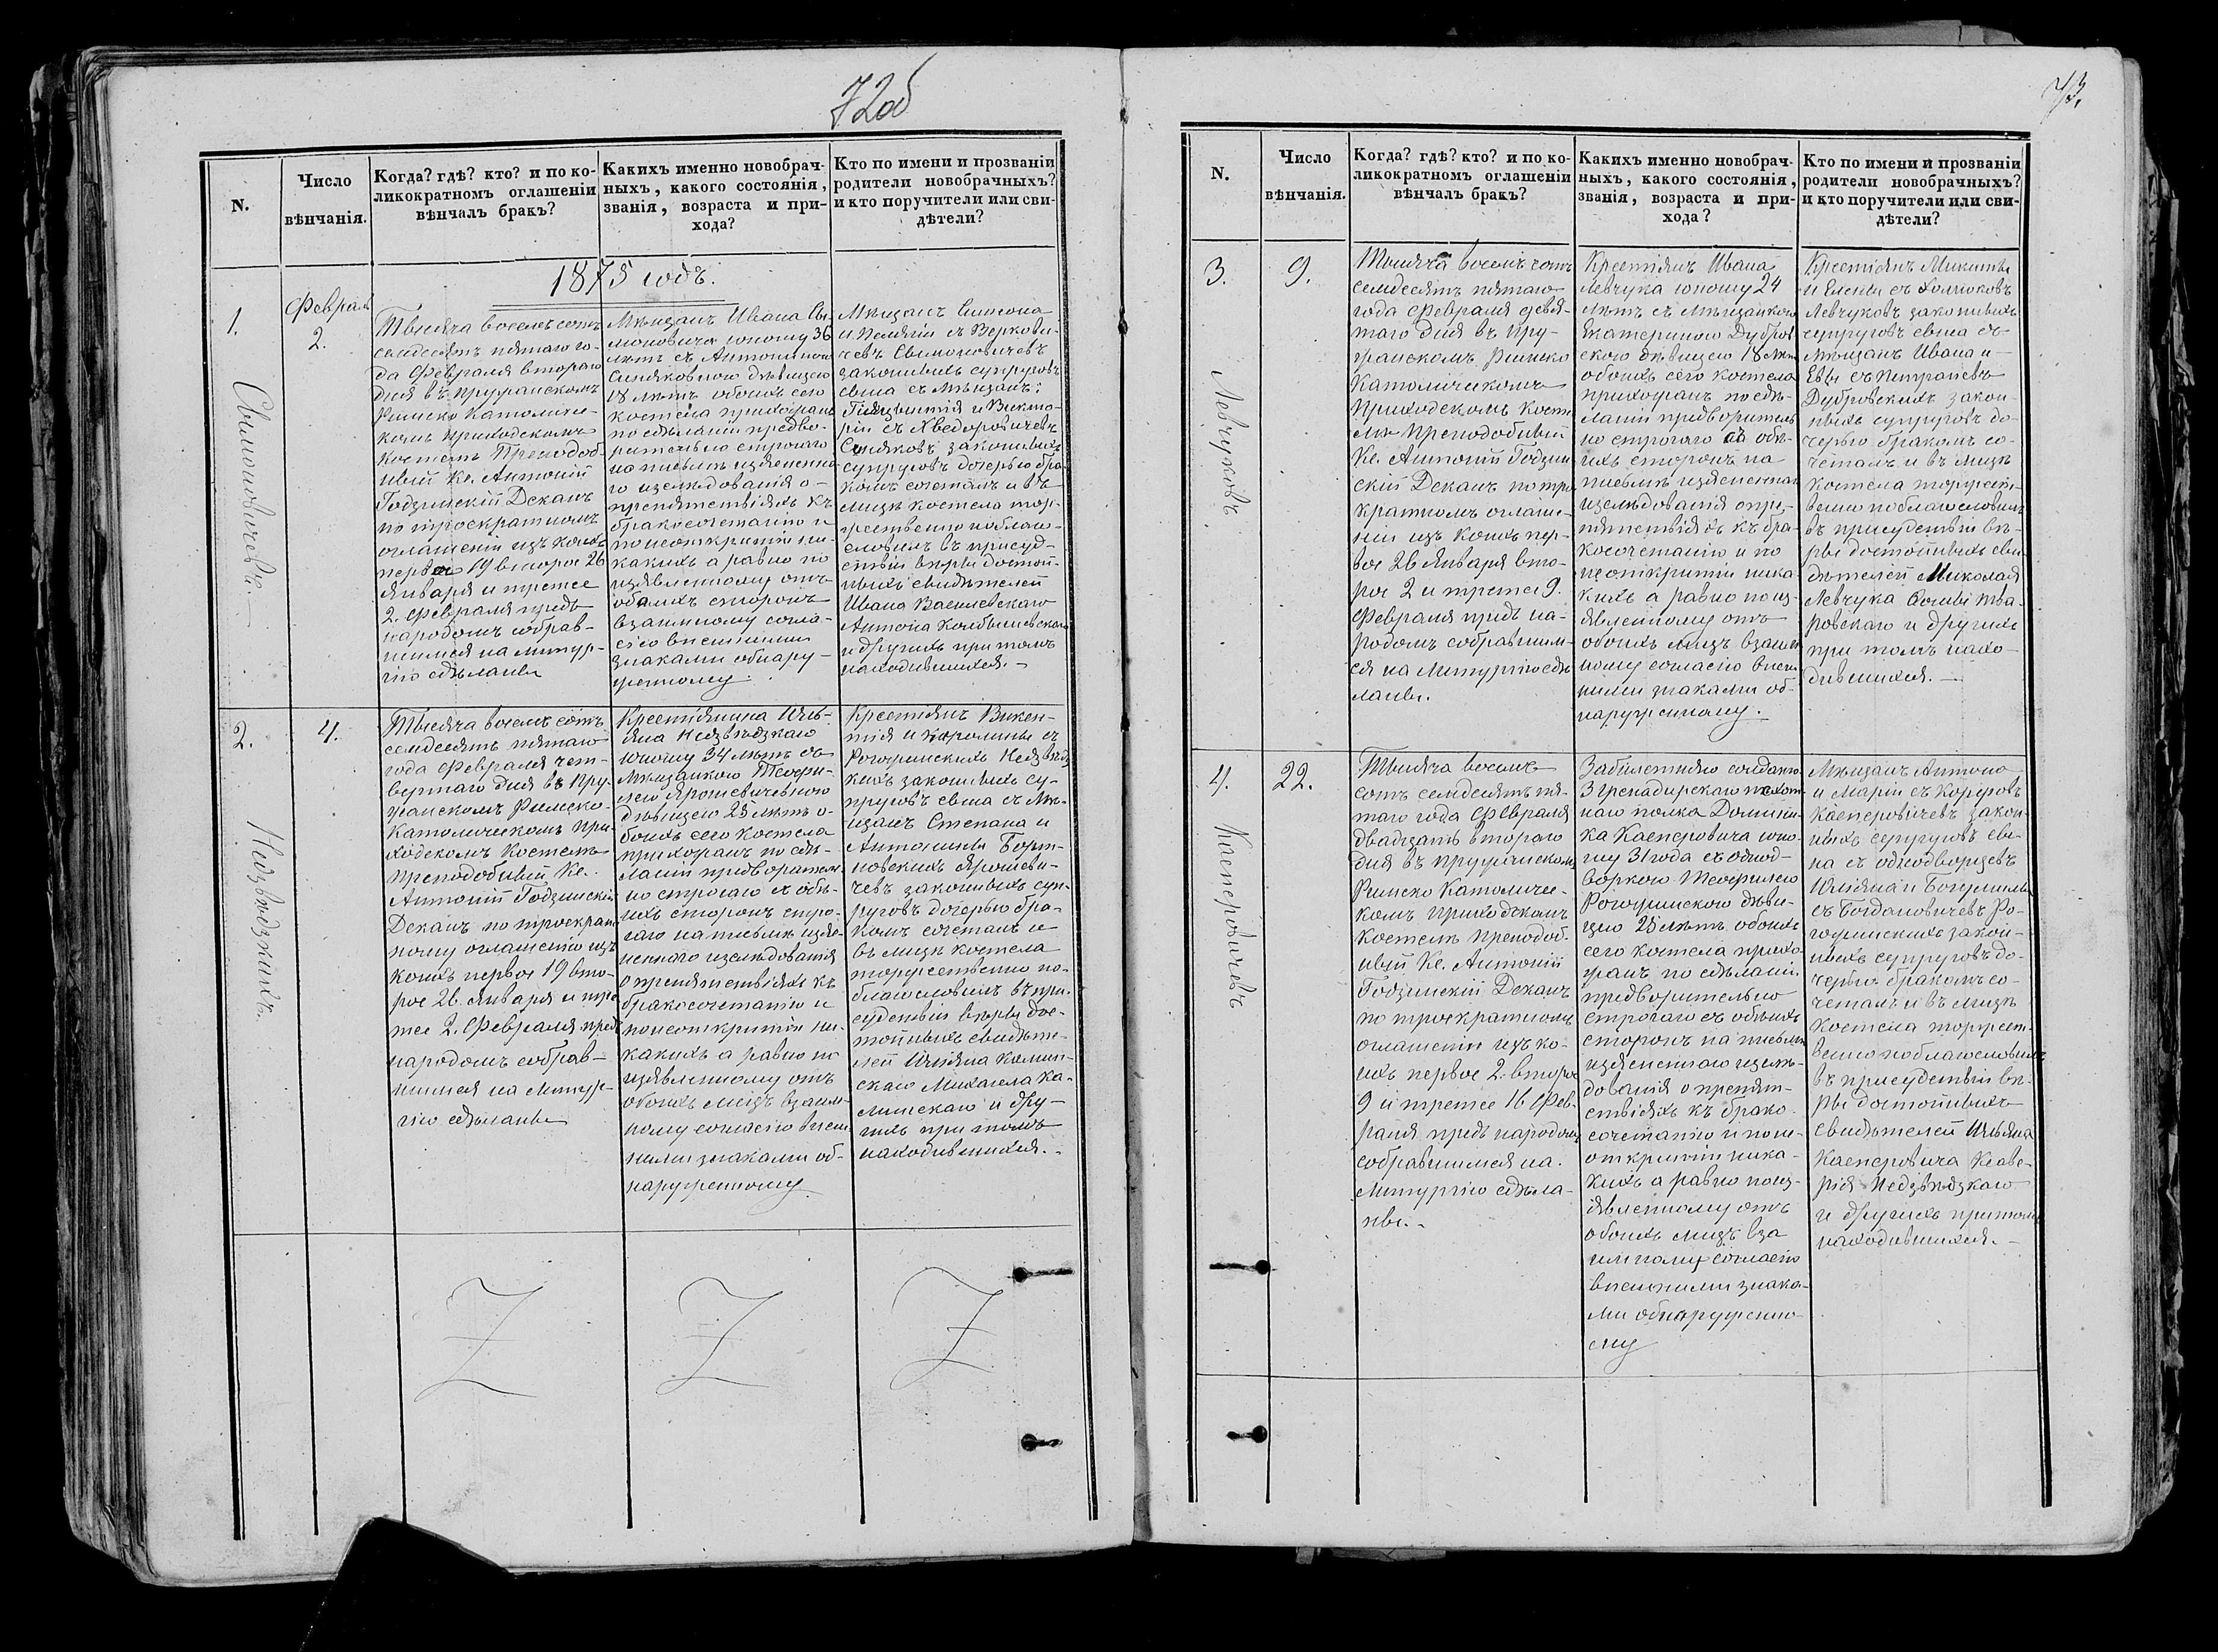 72об
N.
Число
вѣнчанія.
Когда? гдѣ? кто? и по ко-
ликократномъ оглашеніи
вѣнчалъ бракъ?
Какихъ именно новобрач-
ныхъ, какого состоянія,
званія, возраста и при-
хода?
Кто по имени и прозванію
родители новобрачныхъ?
и кто поручители или сви-
дѣтели?
1875 годъ.
1.
Свитоновичевъ.
Февраля
2.
Тысяча восемь сотъ
семдесятъ пятаго го-
да Февраля втораго
дня въ Пружанскомъ
Римско Католиче-
комъ приходскомъ
костелѣ Преподоб-
ный Кс. Антоній
Годзинскій Деканъ
по троекратномъ
оглашеніи изъ коихъ
первое 19 второе 26
Января и третее
2. Февраля предъ
народомъ собрав-
шимся на литур-
гію сдѣланы
Мѣщанъ Ивана
юношу 36
лѣтъ съ Антониною
Синяковною дѣвицею
18 лѣтъ обоихъ сего
костела прихожанъ
по сдѣланіи предво-
рительно строгаго
на письмѣ
го изслѣдованія о
препятствіяхъ къ
бракосочетанію и
по неоткрытіи ни-
какихъ а равно по
изявленному отъ
обоихъ сторонъ
взаимному согла-
сію внешними
знаками обнару-
женному.
Мѣщанъ Симеона
и съ Веркови-
чевъ
законныхъ супруговъ
сына съ мѣщанъ:
и Викто-
ріи съ Хведоровичевъ
Синяковъ законныхъ
супруговъ дочерью бра-
комъ сочеталъ и въ
лицѣ костела тор-
жественно поблаго-
словилъ въ присуд-
ствіи вѣры достой-
ныхъ свидѣтелей
Ивана Василевскаго
Антона
и другихъ при томъ
находившихся.-
2.
Недзвѣдзкихъ.
4.
Тысяча восемь сотъ
семдесятъ пятаго
года Февраля чет-
вертаго дня въ Пру-
жанскомъ Римско-
Католическомъ При-
ходскомъ Костелѣ
Преподобный Кс.
Антоній Годзинскій
Деканъ по троекрат
ному оглашенію изъ
коихъ первое 19 вто-
рое 26. Января и тре
тее 2. Февраля предъ
народомъ собрав-
шимся на Литур-
гію сдѣланы
Крестіянина Иль-
яна Недзвѣдзкаго
юношу 34 лѣтъ съ
Мѣщанкою Теофи-
лею Ярошевичевною
дѣвицею 25 лѣтъ о-
боихъ сего костела
прихожанъ по сдѣ-
ланіи предворитель-
но строгаго съ обѣ-
ихъ сторонъ стро-
гаго на письмѣ изяс-
неннаго изслѣдованія
о препятствіяхъ къ
бракосочетанію и
по неоткрытіи ни-
какихъ а равно по
изявленному отъ
обоихъ лицъ взаим-
ному согласію внеш
ними знаками об-
наруженному
Крестіянъ Викен-
тія и Каролины съ
Рогожинскихъ Недзвѣдз
кихъ законныхъ су-
пруговъ сына съ Мѣ-
щанъ Степана и
Антонины Борт-
новскихъ Ярошеви-
чевъ законныхъ суп-
руговъ дочерью бра-
комъ сочеталъ и
въ лицѣ костела
торжественно по-
благословилъ въ при-
судствіи вѣры дос-
тойныхъ свидѣте-
лей Ильяна Камин-
скаго Михаела Ка-
линскаго и дру-
гихъ при томъ
находившихся.-
73.
N.
Число
вѣнчанія.
Когда? гдѣ? кто? и по ко-
ликократномъ оглашеніи
вѣнчалъ бракъ?
Какихъ именно новобрач-
ныхъ, какого состоянія,
званія, возраста и при-
хода?
Кто по имени и прозваніи
родители новобрачныхъ?
и кто поручители или сви-
дѣтели?
3.
Левчуковъ
9.
Тысяча восемь сотъ
семдесятъ пятаго
года Февраля девя-
таго дня въ Пру-
жанскомъ Римско
Католическомъ
Приходскомъ Косте
лѣ Преподобный
Кс. Антоній Годзин
скій Деканъ по трое
кратномъ оглаше-
ніи изъ коихъ пер-
вое 26 Января вто-
рое 2 и третее 9.
Февраля предъ на-
родомъ собравшим-
ся на Литургію сдѣ
ланы.
Крестіянъ Ивана
Левчука юношу 24
лѣтъ съ Мѣщанкою
Екатериною Дубров
скою дѣвицею 18 лѣтъ
обоихъ сего костела
прихожанъ по сдѣ-
ланіи предворитель
но строгаго съ обѣ-
ихъ сторонъ на
письмѣ изясненнаго
изслѣдованія о пре-
пятствіяхъ къ бра-
косочетанію и по
неоткрытіи ника-
кихъ а равно по из-
явленному отъ
обоихъ лицъ взаим
ному согласію внеш
ними знаками об-
наруженному.
Крестіянъ Микиты
и Елены съ Холшоковъ
Левчуковъ законныхъ
супруговъ сына съ
Мѣщанъ Ивана и
Евы съ Петрашевъ
Дубровскихъ закон-
ныхъ супруговъ до-
черью бракомъ со-
четалъ и въ лицѣ
Костела торжест-
венно поблагословилъ
въ присудствіи вѣ-
ры достойныхъ сви
дѣтелей Миколая
Левчука
и другихъ
при томъ нахо-
дившихся.-
4.
Касперовичевъ
22.
Тысяча восемь
сотъ семдесятъ пя-
таго года Февраля
двадцать втораго
дня въ Пружанскомъ
Римско Католичес-
комъ Приходскомъ
Костелѣ Преподоб-
ный Кс. Антоній
Годзинскій Деканъ
по троекратномъ
оглашеніи изъ ко-
ихъ первое 2. второе
9 и третее 16 Фев-
раля предъ народомъ
собравшимся на
Литургію сдѣла-
ны.-
Забилетняго солдата
3 Гренадирскаго пехот
наго полка Домини-
ка Касперовича юно-
шу 31 года съ однод-
воркою Теофилею
Рогожинскою дѣви-
цею 25 лѣтъ обоихъ
сего костела прихо
жанъ по сдѣланіи
предворительно
строгаго съ обѣихъ
сторонъ на письмѣ
изясненнаго изслѣ-
дованія о препят-
ствіяхъ къ брако-
сочетанію и по не-
открытіи ника-
кихъ а равно по из-
явленному отъ
обоихъ лицъ вза
имному согласію
внешними знака-
ми обнаруженно-
му
Мѣщанъ Антона
и Маріи съ Коруровъ
Касперовичевъ закон
ныхъ супруговъ сы-
на съ однодворцевъ
Юліяна и Богумилы
съ Богдановичевъ Ро-
гожинскихъ закон-
ныхъ супруговъ до-
черью бракомъ со-
четалъ и въ лицѣ
Костела торжест-
венно поблагословилъ
въ присудствіи вѣ-
ры достойныхъ
свидѣтелей Ильяна
Касперовича Ксаве-
рія Недзвѣдзкаго
и другихъ при томъ
находившихся.-